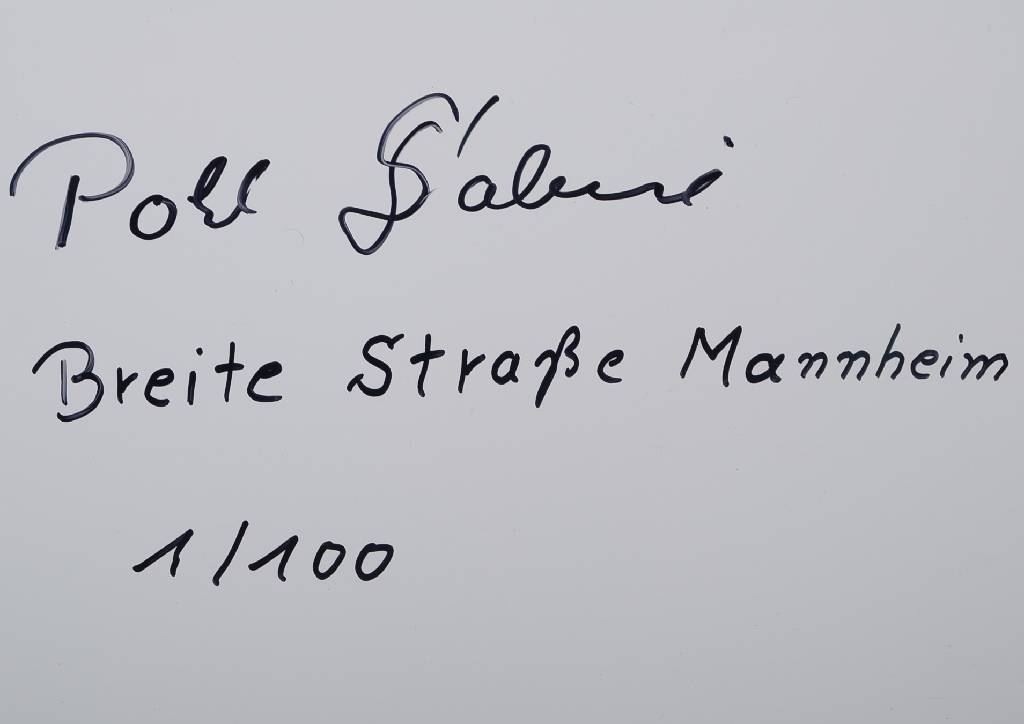 Pohl Sabine
Breite Straße Mannheim
1/100